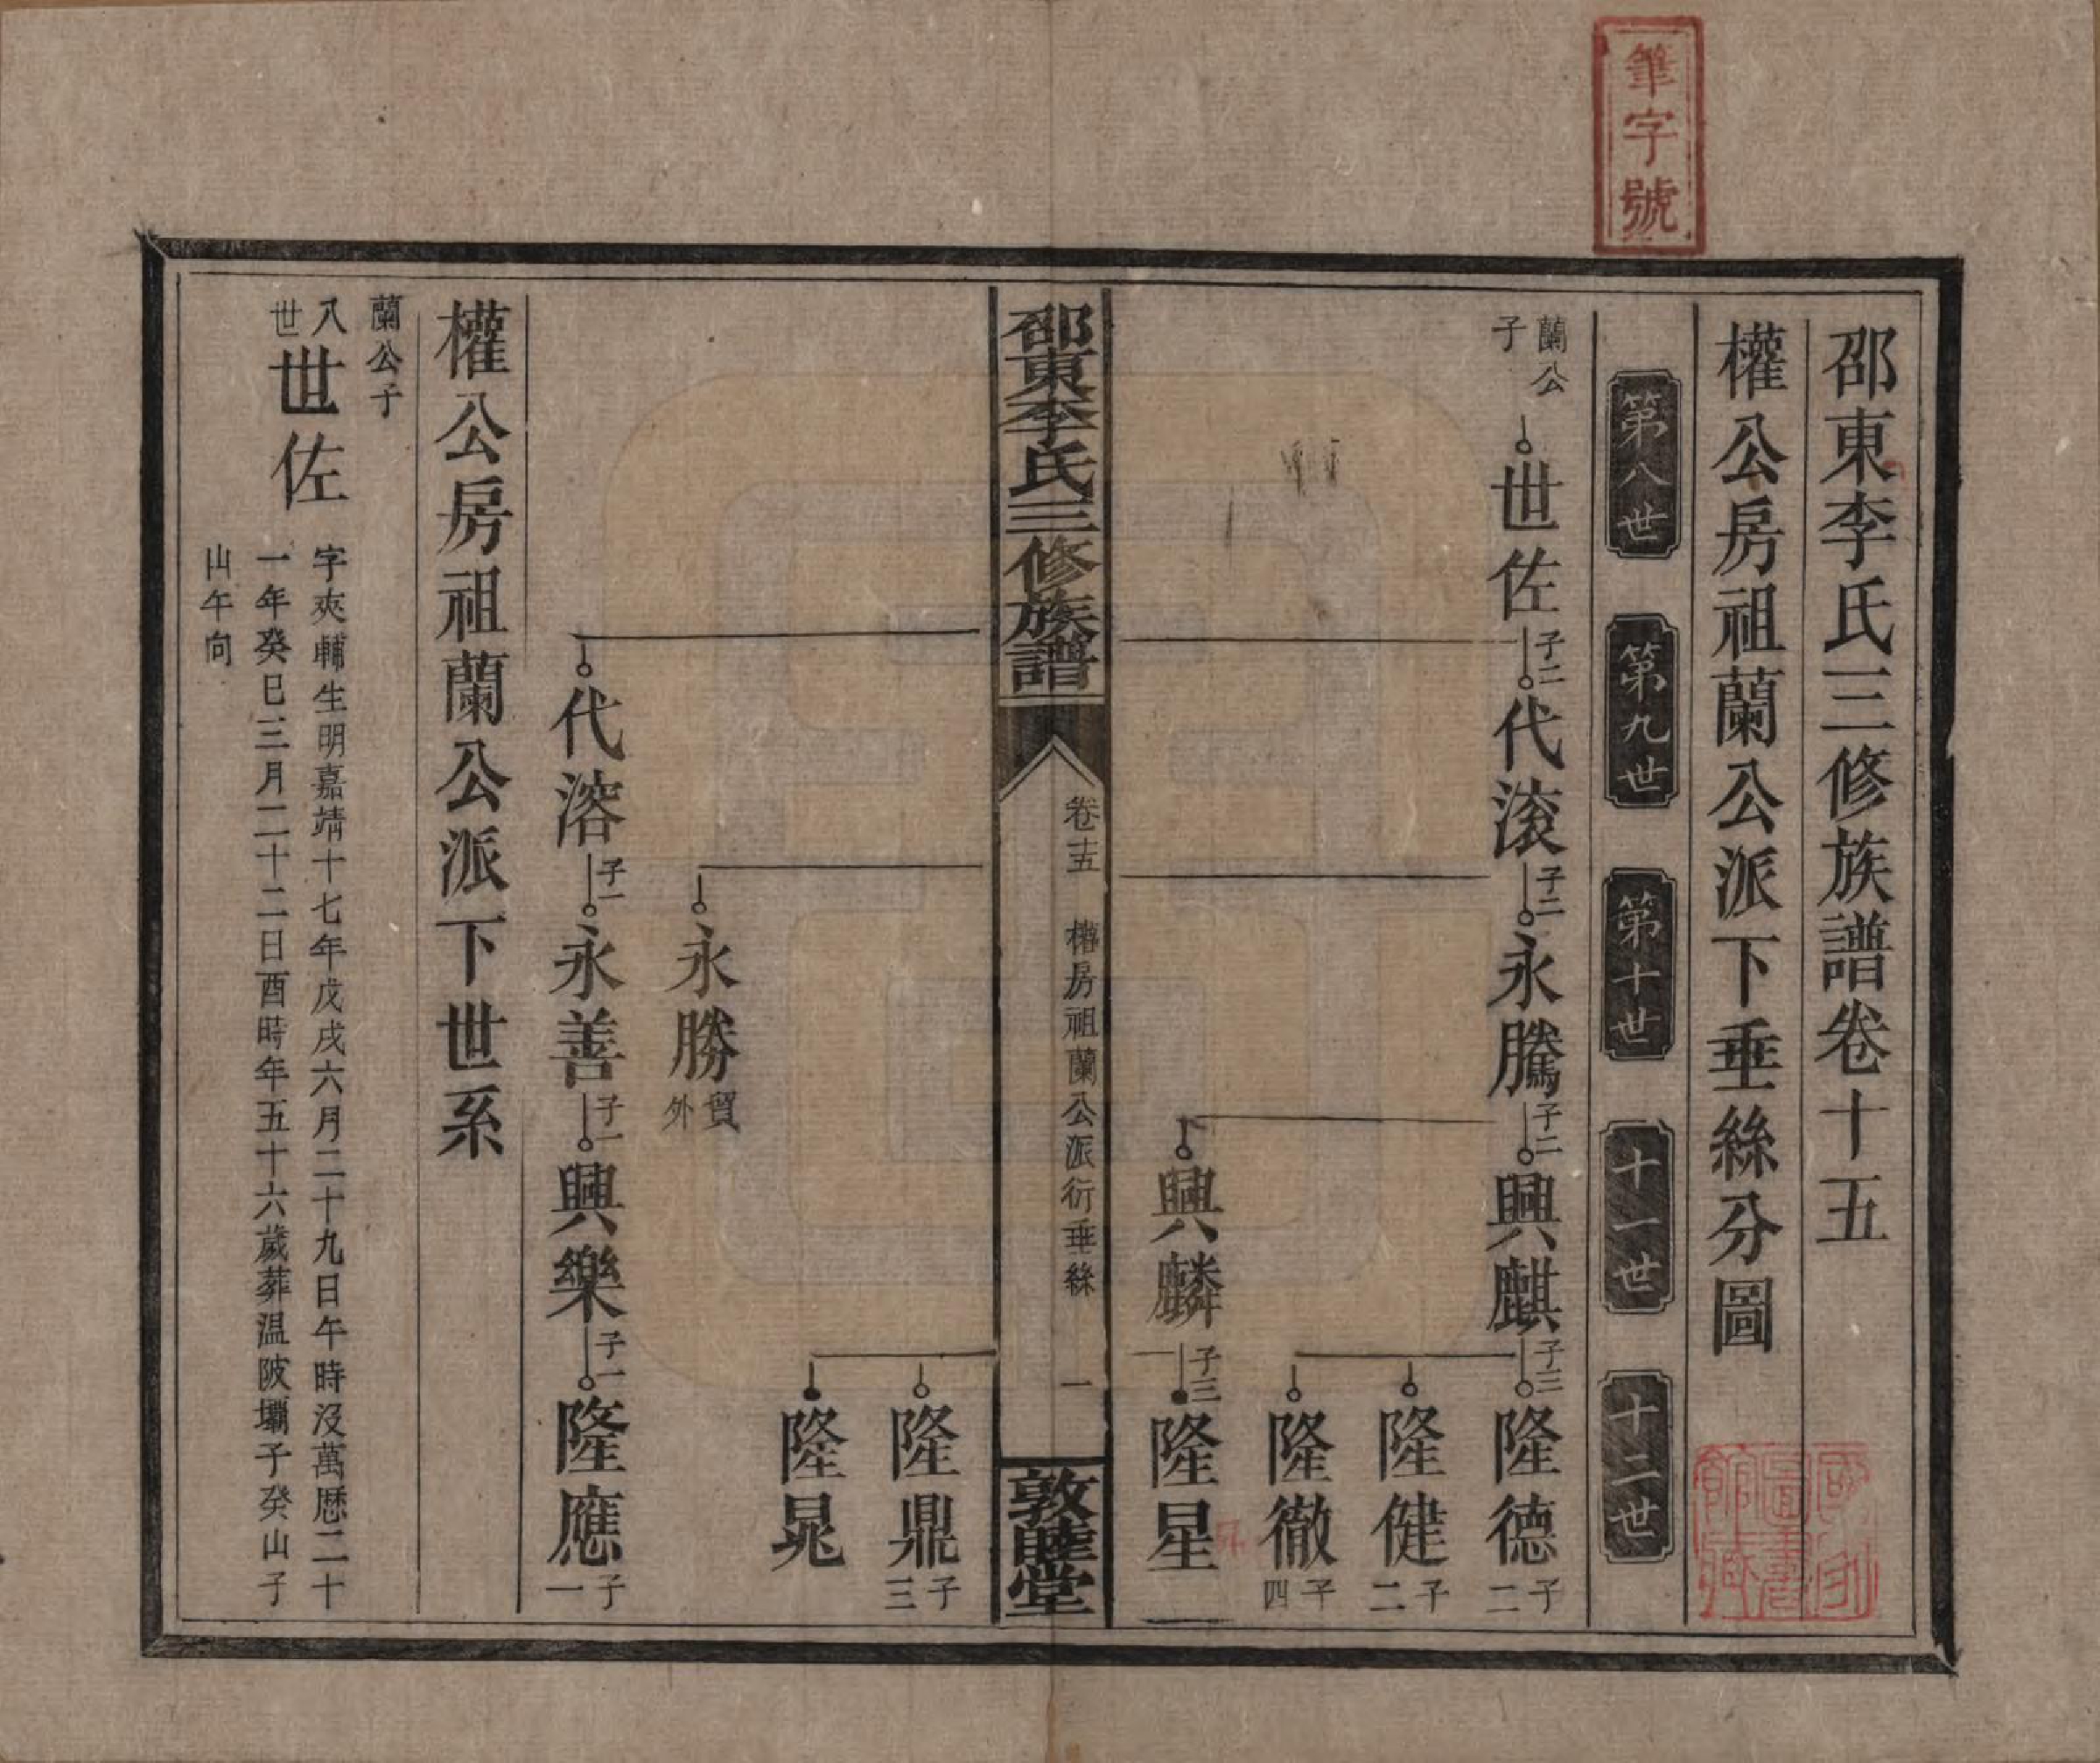 筆字號
邵東李氏三修族譜卷十五
權公房祖蘭公派下垂絲分圖
第八世
第九世
第十世
十一世
十二世
蘭公子
世佐 子二
代滚 子二
永騰 子二
興麒 子三
隆德 子二
隆健 子二
隆徹 子四
興麟 子三
隆星
邵東李氏三修族譜
卷十五
權房祖蘭公派衍垂絲
一
敦睦堂
隆鼎 子三
隆晁
永勝 貿外
代溶 子一
永善 子一
興樂 子一
隆應 子一
權公房祖蘭公派下世系
蘭公子
八世
世佐
字夾輔生明嘉靖十七年戊戌六月二十九日午時沒萬歷二十
一年癸巳三月二十二日酉時年五十六歲葬温陂壩子癸山子
山午向